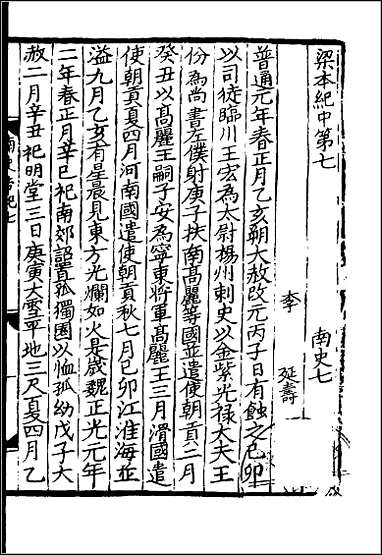 梁本紀中第七　南史七
李　延壽
普通元年春正月乙亥朔大赦改元丙子日有蝕之己卯
以司徒臨川王宏為太尉楊州刺史以金紫光祿大夫王
份為尚書左僕射庚子扶南高麗等國並遣使朝貢二月
癸丑以高麗王嗣子安為寧東將軍高麗王三月滑國遣
使朝貢夏四月河南國遣使朝貢秋七月己卯江淮海並
溢九月乙亥有星晨見東方光爛如火是歲魏正光元年
二年春正月辛巳祀南郊詔置孤獨園以恤孤幼戊子大
赦二月辛丑祀明堂三日庚寅大雪平地三尺夏四月乙
南史本紀七